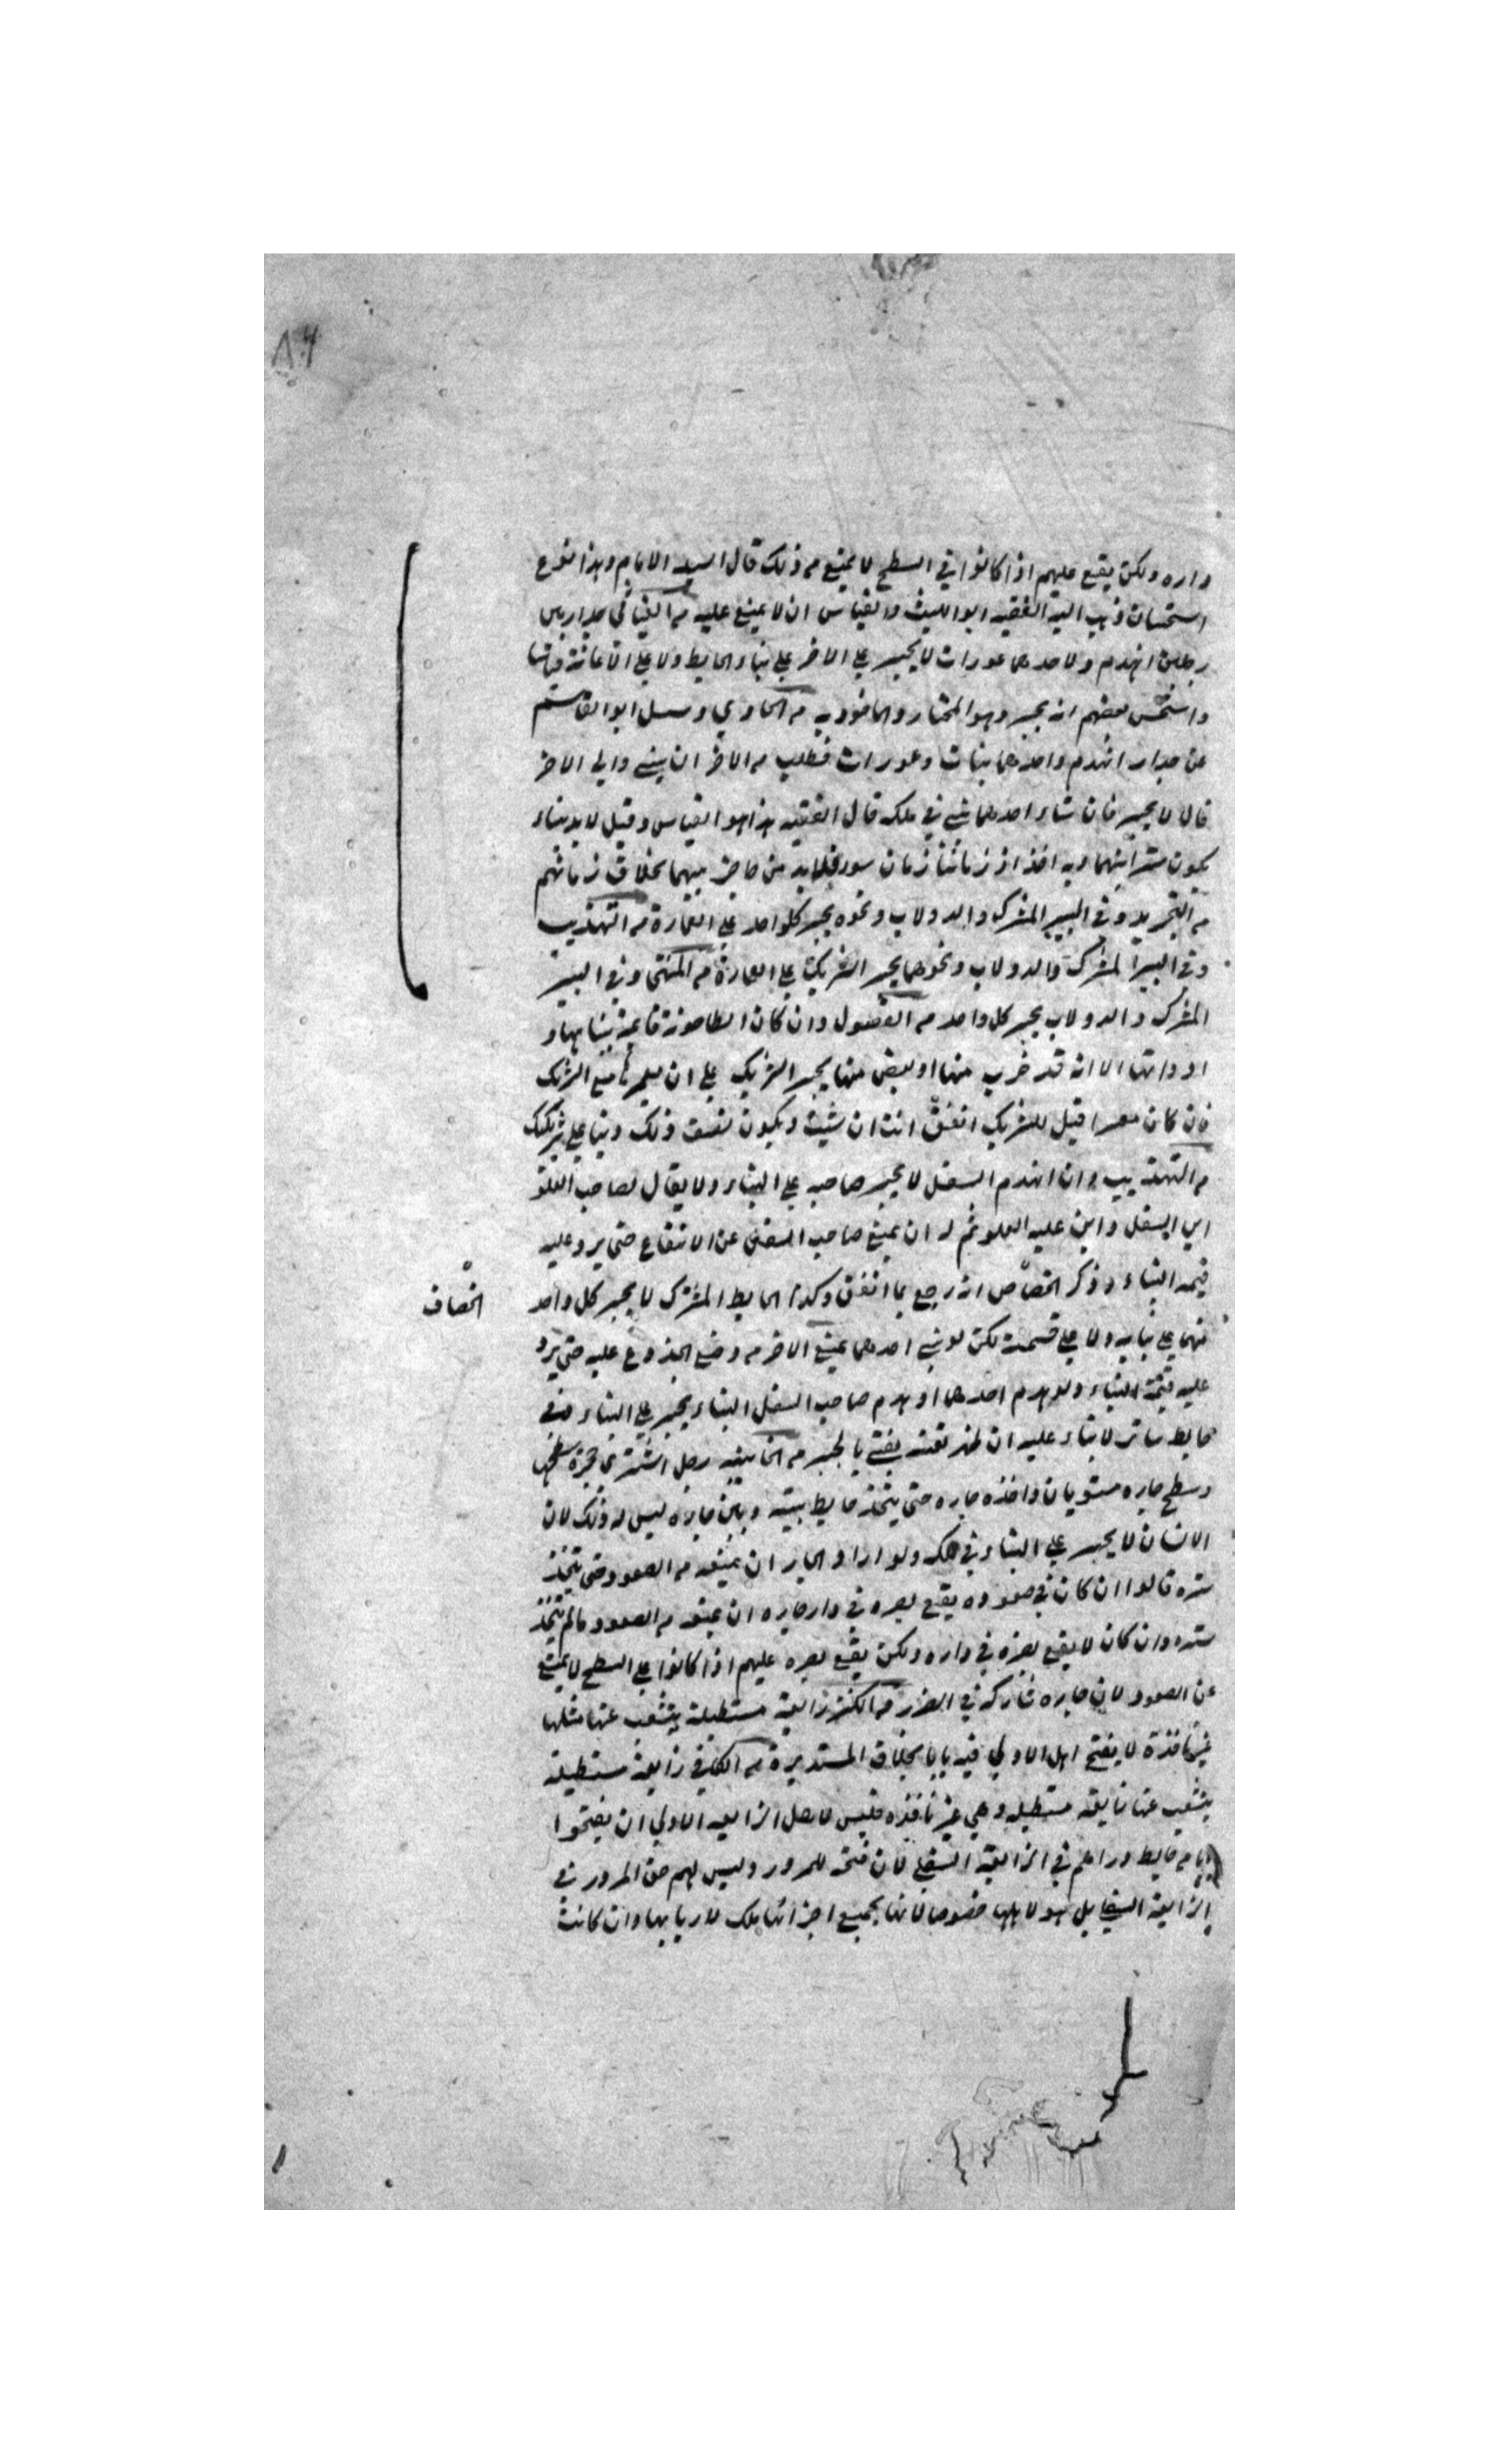 داره ولكن يقع عليهم اذا كانوا في السطح لا يمنع من ذلك قال السيد الامام وهذا نوع
استحسان ذهب اليه الفقيه ابو الليث والقياس ان لا يمنع عليه من جدار بين
رجلين انهدم ولاحدهما عورات لا يجبر على الاخر على بناء الحايط ولا على الاعانة
واستحسن بعضهم انه يجبر وهو المختار والماخوذ به من الحاوي وسئل ابو القاسم
عن جدار انهدم واحدهما بنات وعورات فطلب من الاخر ان يبني وابى الاخر
قال لا يجبر فان شاء احدهما بنى في ملكه قال الفقيه هذا هو القياس وقيل لابد بناء
يكون سترا بينهما وبه اخذ اذ زماننا زمان سوء فلابد من حاجز بينهما بخلاف زمانهم
من التجريد وفي البير المشترك والدولاب ونحوه يجبر كل واحد على العمارة من التهذيب
وفي البير المشترك والدولاب ونحوهما يجبر الشريك على العمارة من المنتقى وفي البير
المشترك والدولاب يجبر كل واحد من الفصول وان كان الطاحونة قايمة ببنايها و
ادواتها الا انه قد خرب منها او بعض منها يجبر الشريك على ان يعمر مع الشريك
فان كان معسرا قيل للشريك انفق انت ان شئت ويكون نصف ذلك دينا على شريكك
من التهذيب وان انهدم السفل لا يجبر صاحبه على البناء ولا يقال لصاحب العلو
ابن السفل وابن عليه العلو ثم له ان يمنع صاحب السفل عن الانتفاع حتى يرد عليه
قيمة البناء وذكر الخصاص انه رجع بما انفق وكذا الحايط المشترك لا يجبر كل واحد
الخصاف
منهما على بنايه ولا على قسمته لكن لو بنى احدهما يمنع الاخر من وضع الجذوع عليه حتى يرد
عليه قيمة البناء ولو هدم احدهما او هدم صاحب السفل البناء يجبر على البناء وفي
حايط ساتر لا بناء عليه ان ظهر تعنته يفتي بالجبر من الخانية رجل اشترى حجرة سطحها
وسطح جاره مستويان واخذه جاره حتى يتخذ حايط بينه وبين جاره ليس له ذلك لان
الانسان لا يجبر على البناء في ملكه ولو اراد الجار ان يمنعه من الصعود حتى يتخذ
ستره قالوا ان كان في صعوده يقع بصره في دار جاره ان يمنعه من الصعود مالم يتخذ
ستره وان كان لا يقع بصره في داره ولكن يقع بصره عليهم اذا كانوا على السطح لا يمنع
عن الصعود لان جاره شاركه في الضرر من الكنز زايغة مستطيلة يتشعب عنها مثلها
غير نافذة لا يفتح اهل الاولى فيه بابا بخلاف المستديرة من الكافي زايغة مستطيلة
يتشعب عنها زايغة مستطيلة وهي غير نافذه فليس لاهل الزايغه الاولى ان يفتحوا
بابا من حايط دراهم في الزايغة السفلى لان فتحه للمرور وليس لهم حق المرور في
الزايغة السفلى بل هو لاهلها خصوصا لانها بجميع اجزائها ملك لاربابها وان كانت